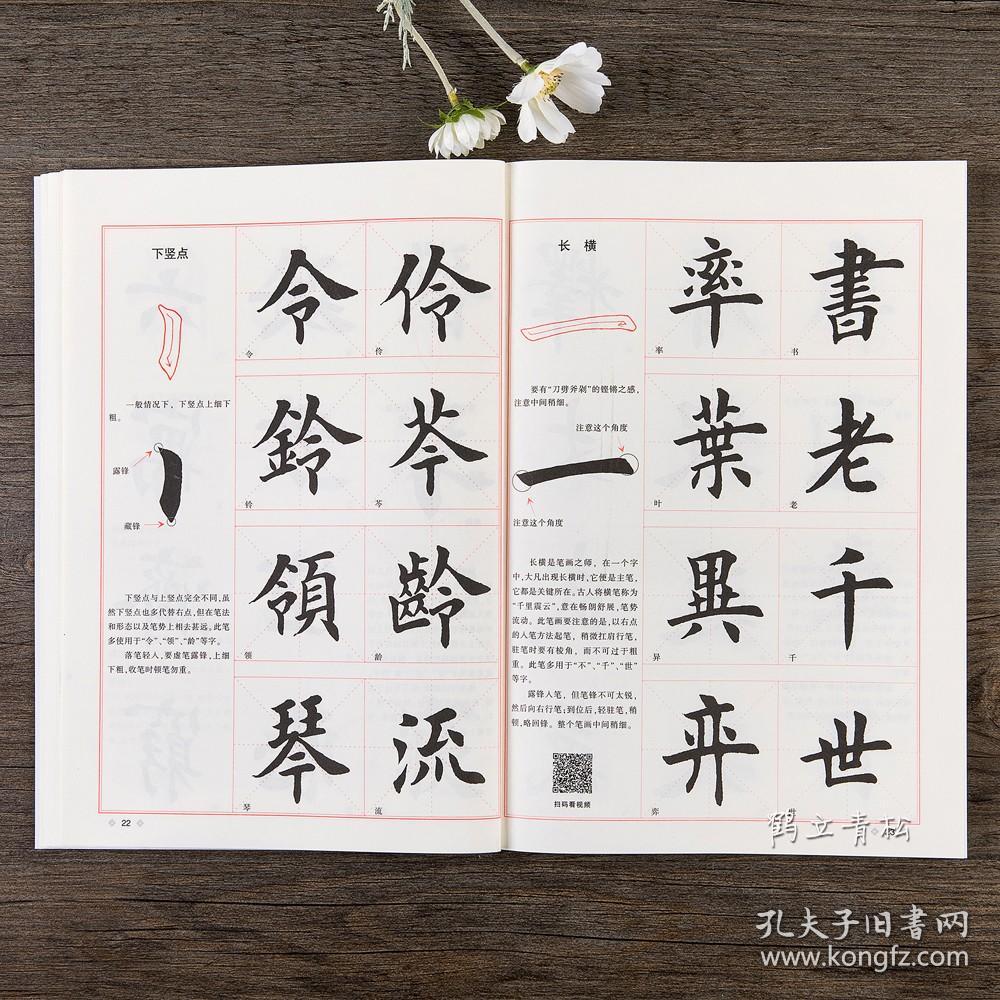 下竖点
一般情况下，下竖点上细下
粗。
露锋
藏锋
下竖点与上竖点完全不同，虽
然下竖点也多代替右点，但在笔法
和形态以及笔势上相去甚远。此笔
多使用于“令”、“领”、“龄”等字。
落笔轻入，要虚笔露锋，上细
下粗，收笔时顿笔勿重。
令 伶
令 伶
鈴 芩
铃 芩
領 齡
领 龄
琴 流
琴 流
22
长 横
要有“刀劈斧剁”的铿锵之感，
注意中间稍细。
注意这个角度
注意这个角度
长横是笔画之师，在一个字
中，大凡出现长横时，它便是主笔，
它都是关键所在。古人将横笔称为
“千里震云”，意在畅朗舒展，笔势
流动。此笔画要注意的是，以右点
的入笔方法起笔，稍微扛肩行笔，
驻笔时要有棱角，而不可过于粗
重。此笔多用于“不”、“千”、“世”
等字。
露锋入笔，但笔锋不可太锐，
然后向右行笔；到位后，轻驻笔，稍
顿，略回锋。整个笔画中间稍细。
扫码看视频
率 書
率 书
葉 老
叶 老
異 千
异 千
弈 世
弈
鹤立青松
孔夫子旧书网
www.kongfz.com